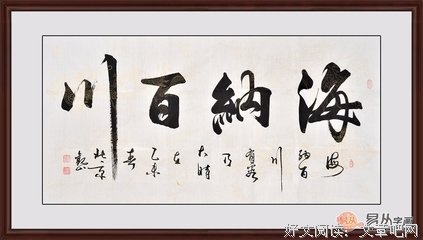 海納百川
海納百川有容乃大時在乙未春北京
易从字画
好文阅读：文章吧网